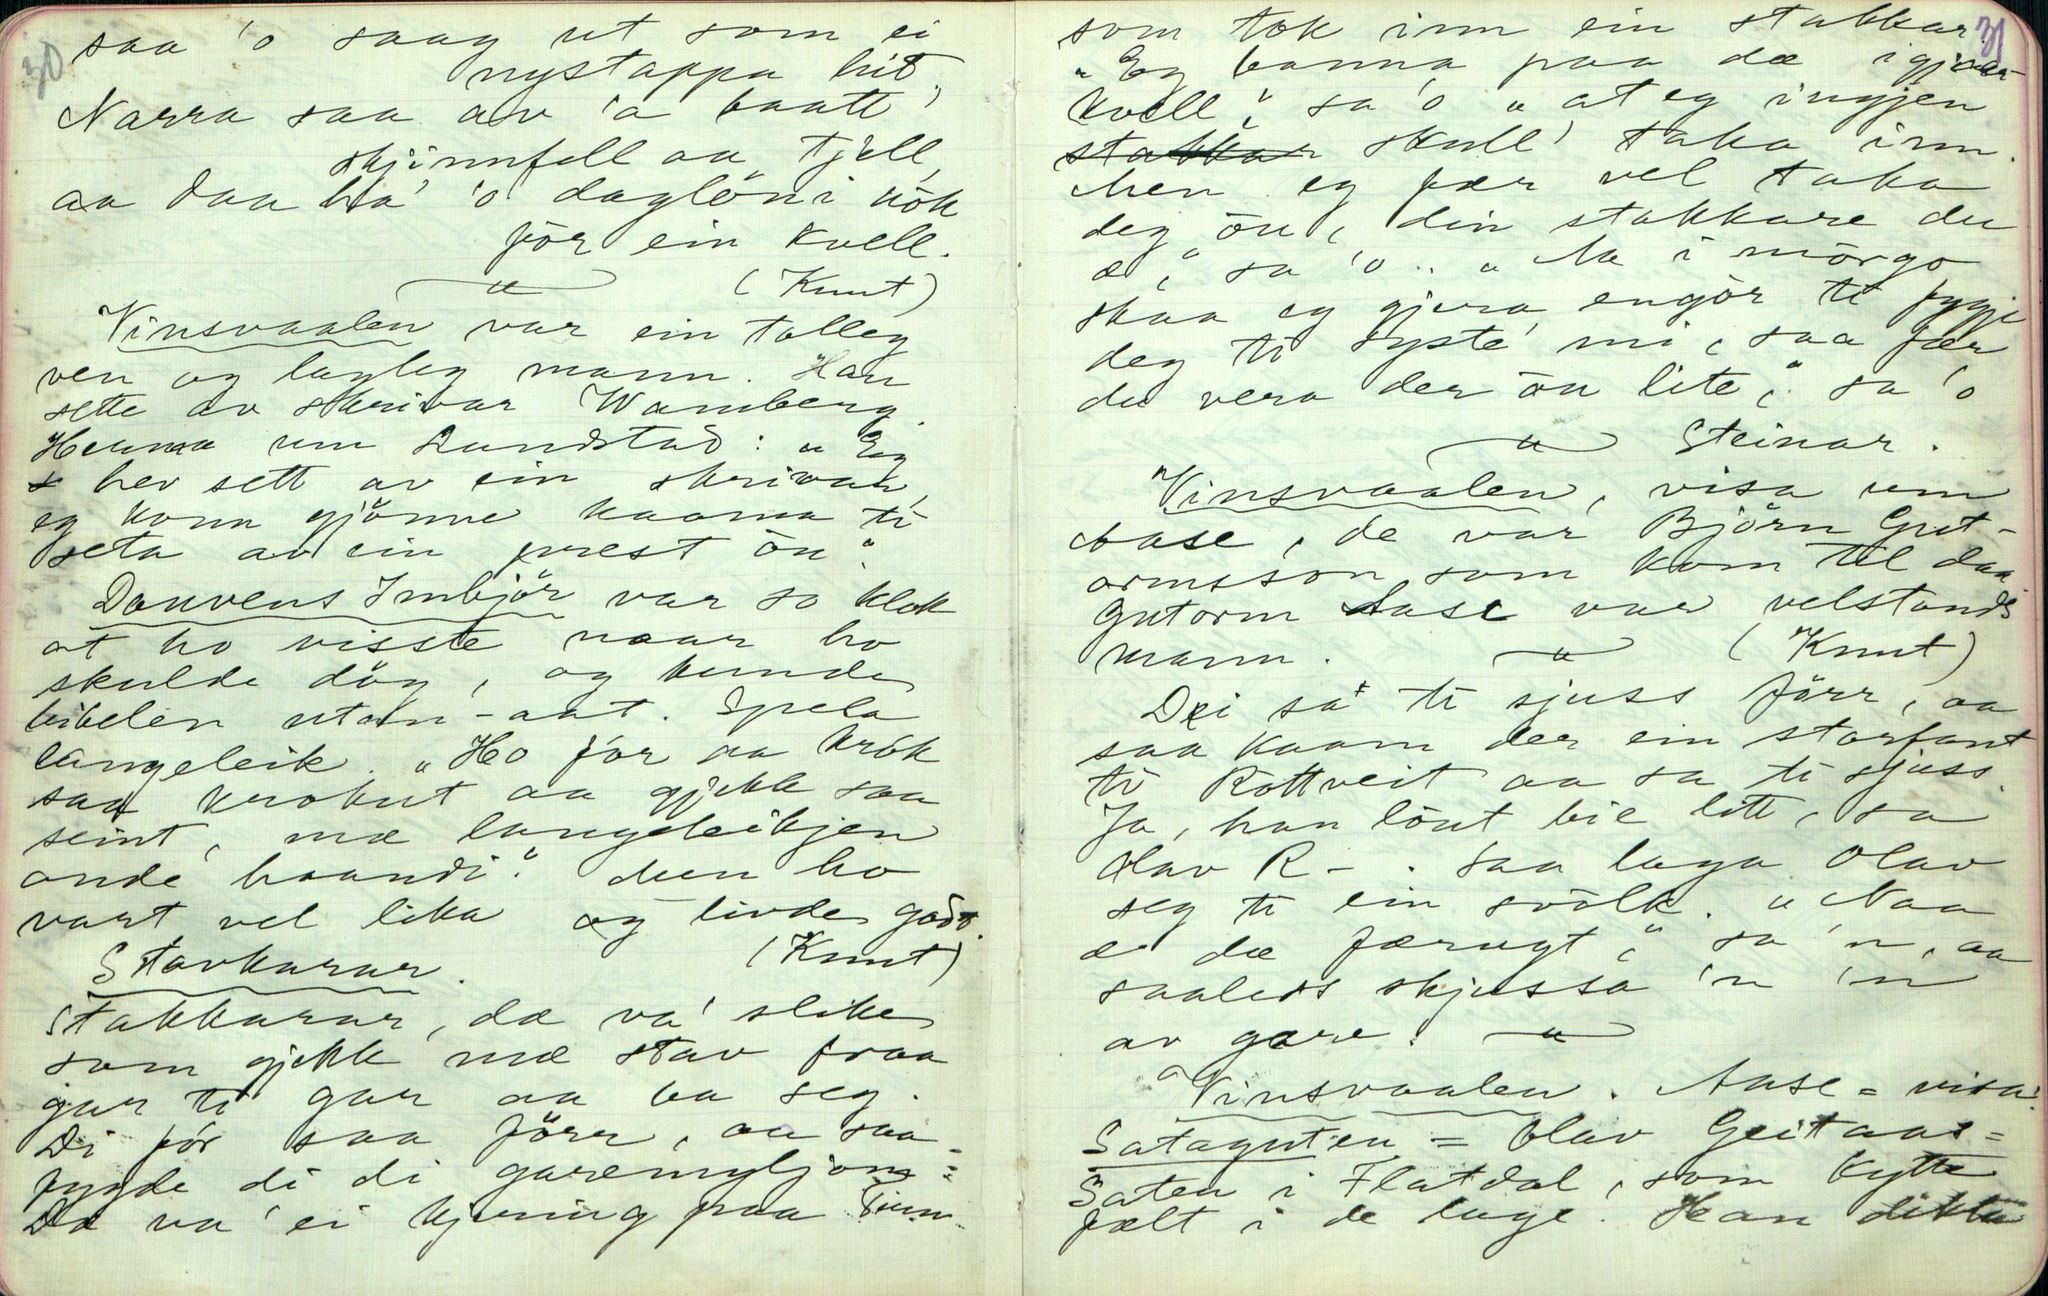 30
saa 'o saag ut som ei
nystappa hid.
Narra saa av 'a baatt'
skjinnfell aa tjell,
aa daa ha' 'o daglöni nök
för ein kvell.
(Knut)
Vinsvaalen var ein talleg
ven og lagleg mann. Han
sette av skrivar Wamberg.
Henna um Lundstad: "Eg
hev sett av ein skrivar,
eg konn gjönne kaama ti
seta av ein prest òu".
Dauvens Imbjör var so klok
at ho visste naar ho
skulde döy, og kunde
bibelen utan-aat. Spela
langeleik. "Ho för aa krök
saa krokut aa gjekk saa
seint, mæ langeleikjen
onde haandi." Men ho
vart vel lika og livde godt.
(Knut)
Stavkarar.
Stakkarar, dæ va' slike
som gjekk mæ stav fraa
gar ti gar aa ba seg.
Di för saa förr, aa saa
fygde di di garemyljom =
Dæ va' ei kjering paa Tinn
31
som tok inn ein stakkar.
"Eg banna paa dæ igjær-
kvell", sa 'o "at eg ingjen
stakkar skull' taka inn.
Men eg fær vel taka
deg òu, din stakkare du
æ", sa 'o. "Aa i mörgo
skaa eg gjera engör ti fygje
deg ti syste' mi, saa fær
du vera der òu lite," sa 'o
Steinar.
Vinsvaalen, visa um
Aase, de var Björn Gut-
ormsson som kom til daa
Gutorm Aase var velstands
mann. (Knut)
Dei sa' ti sjuss förr, aa
saa kaam der ein storfant
ti Rottveit aa sa ti sjuss.
Ja, han lönt bie litt, sa
Olav R-. Saa laga Olav
seg ti ein svölk. "Naa
æ dæ færugt", sa 'n, aa
saaleis skjussa 'n 'n
av gare.
Vinsvaalen. Aase = visa.
Sataguten = Olav Geitaas =
Saten i Flatdal, som bytte
fælt i de lage. Han dikta